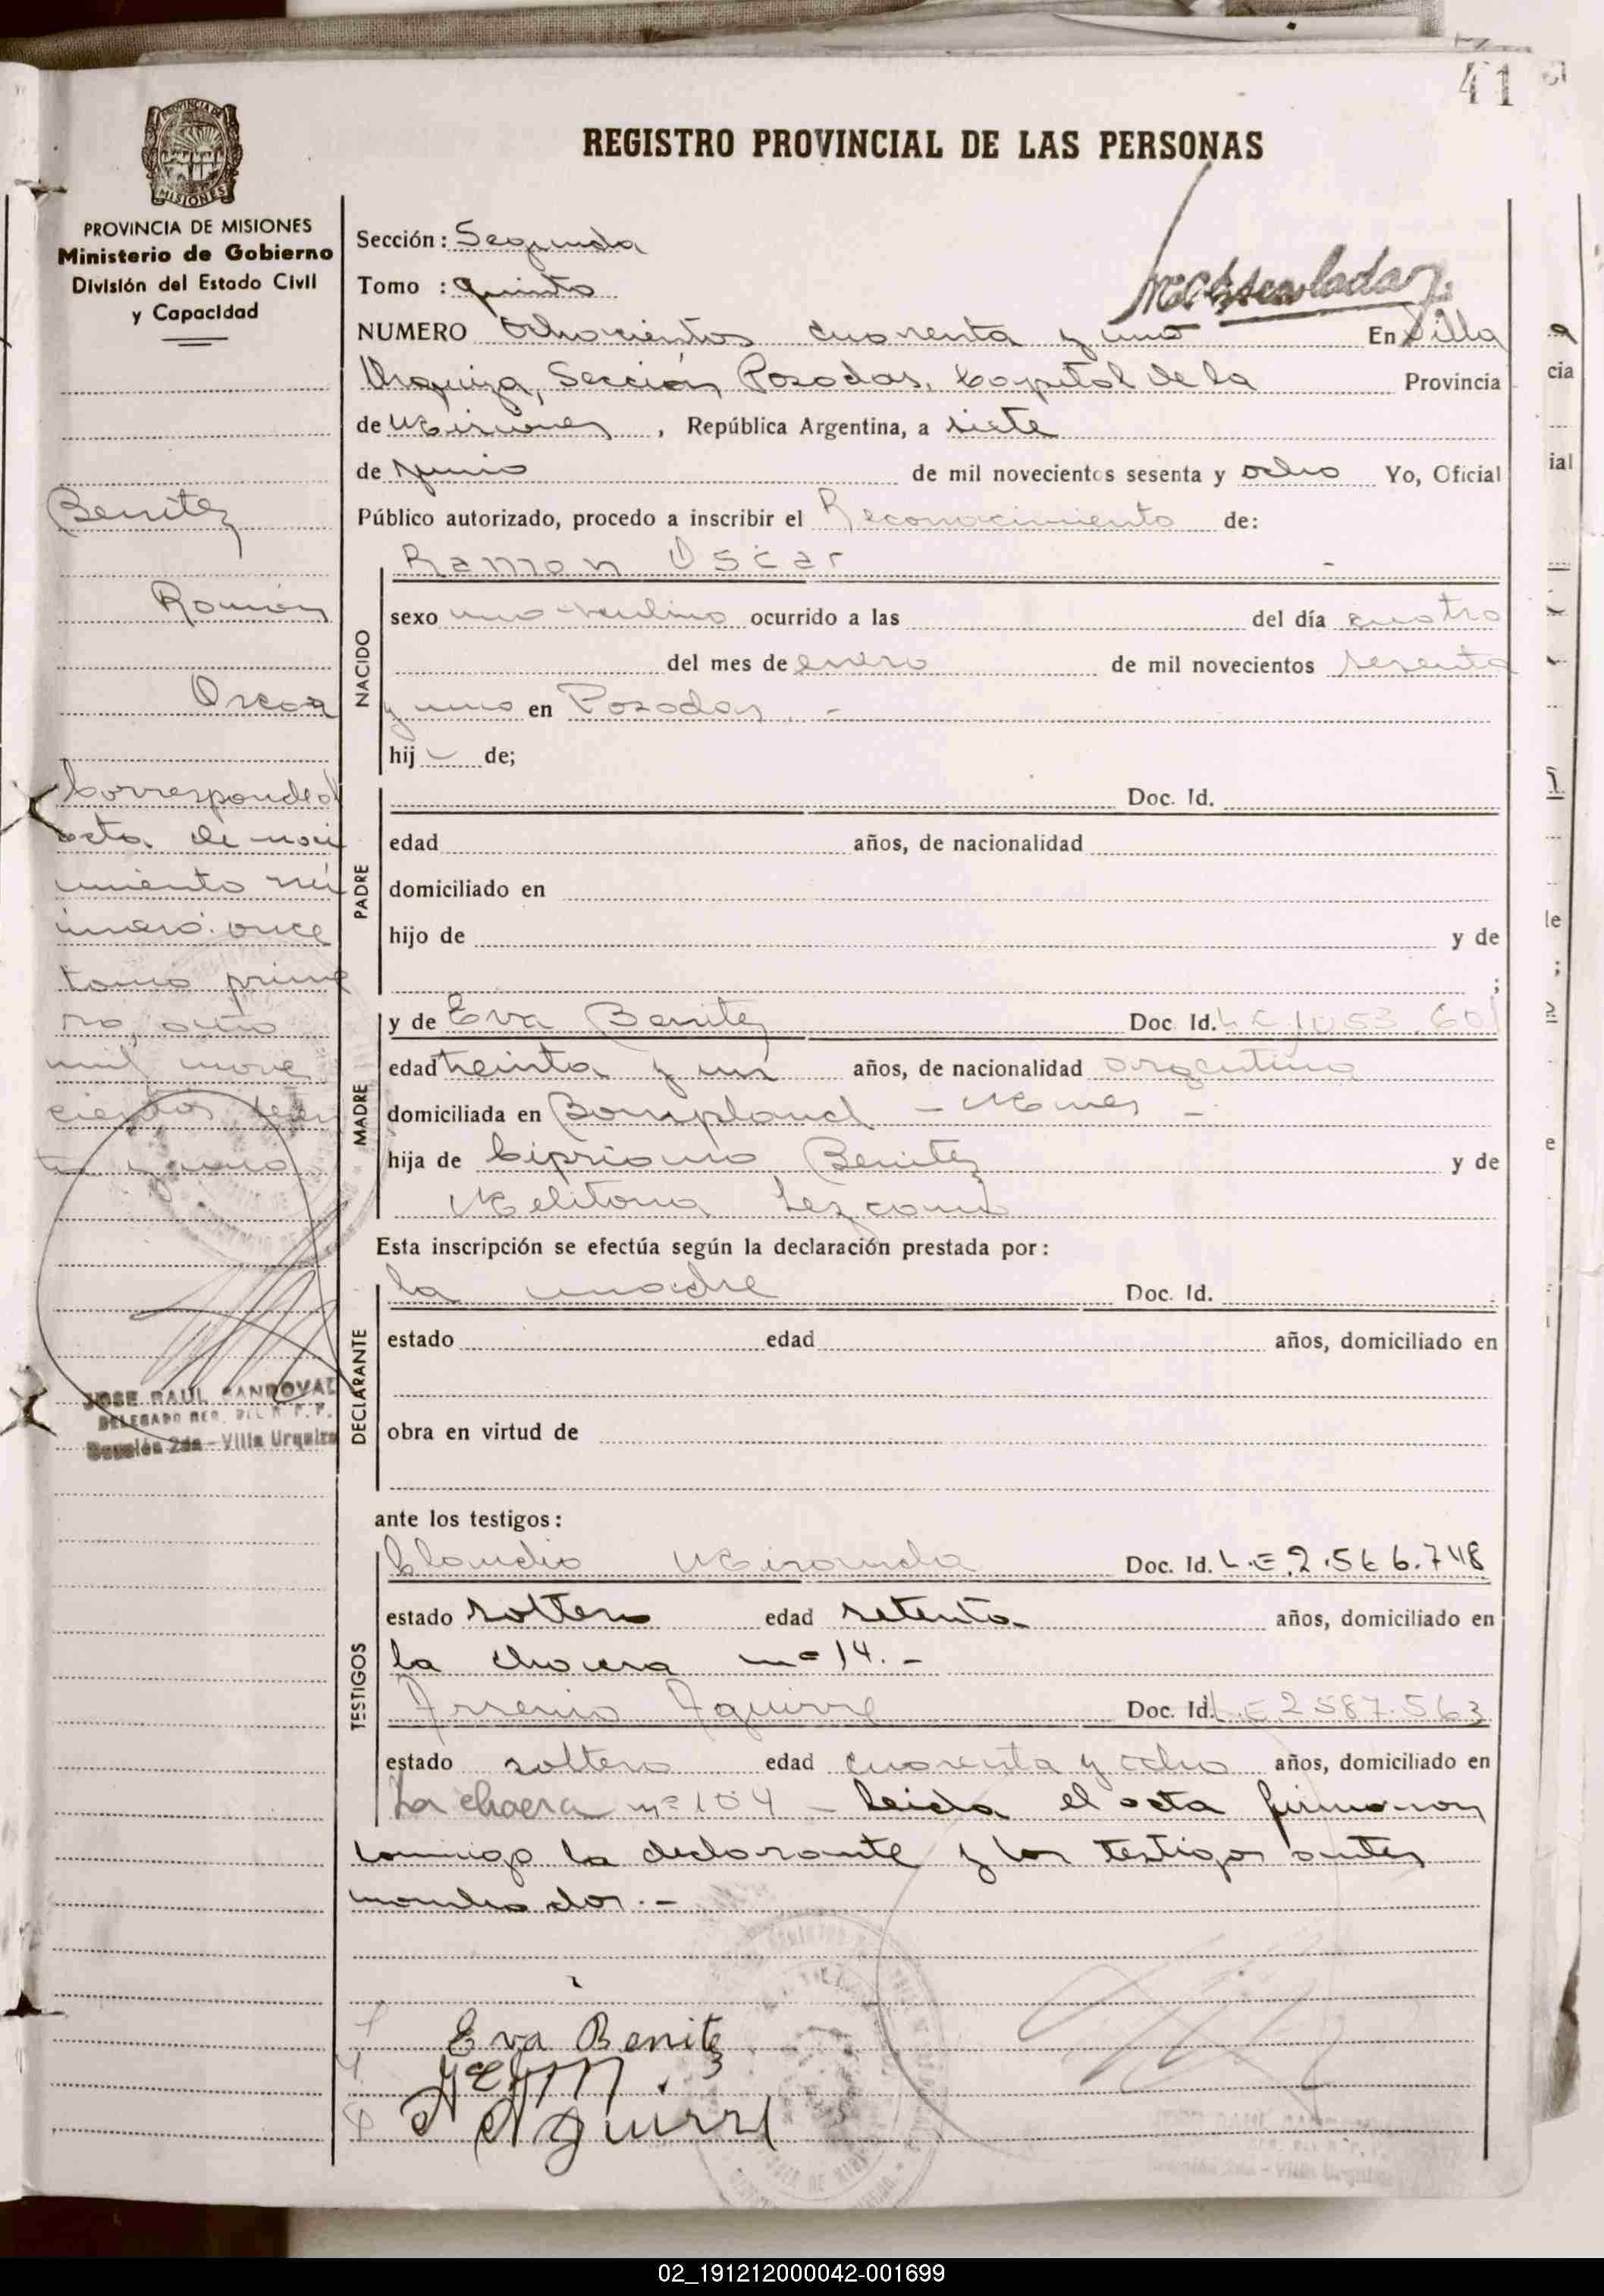 41
REGISTRO PROVINCIAL DE LAS PERSONAS
PROVINCIA DE MISIONES
MISIONES
PROVINCIA DE MISIONES
Ministerio de Gobierno
División del Estado Civil
y Capacidad
Benitez
Ramón
Oscar
Corresponde al
acta de naci
miento nú
mero once
tomo prime
ro, año
mil nove
cientos sesen
ta y uno
JOSE RAUL SANDOVAL
Sección 2da - Villa Urquiza
Sección: Segunda
Tomo : quinto
NUMERO Ochocientos cuarenta y uno En Villa
Urquiza, Sección Posadas, Capital de la Provincia
de Misiones, República Argentina, a siete
de junio de mil novecientos sesenta y ocho Yo, Oficial
Público autorizado, procedo a inscribir el Reconocimiento de:
Ramon Oscar -
NACIDO
sexo masculino ocurrido a las del día cuatro
del mes de enero de mil novecientos sesenta
y uno en Posadas. -
hij de;
PADRE
Doc. Id.
edad años, de nacionalidad
domiciliado en
hijo de y de
;
MADRE
y de Eva Benitez Doc Id.
edad treinta y un años, de nacionalidad argentina
domiciliada en Bompland - Mnes -
hija de Cipriano Benitez y de
Melitona Lezcano
Esta inscripción se efectúa según la declaración prestada por:
DECLARANTE
la madre Doc. Id.
estado edad años, domiciliado en
obra en virtud de
ante los testigos:
TESTIGOS
Claudio Miranda Doc. Id. L.E 2.566.748
estado soltero edad setenta años, domiciliado en
la chacra nº 14. -
Arsenio Aguirre Doc. Id. L.E 2587.563
estado soltero edad cuarenta y ocho años, domiciliado en
La chacra nº 104 - Leida el acta firmaron
conmigo la declarante y los testigos antes
nombrados. -
Eva Benitez
A Aguirre
02_191212000042-001699